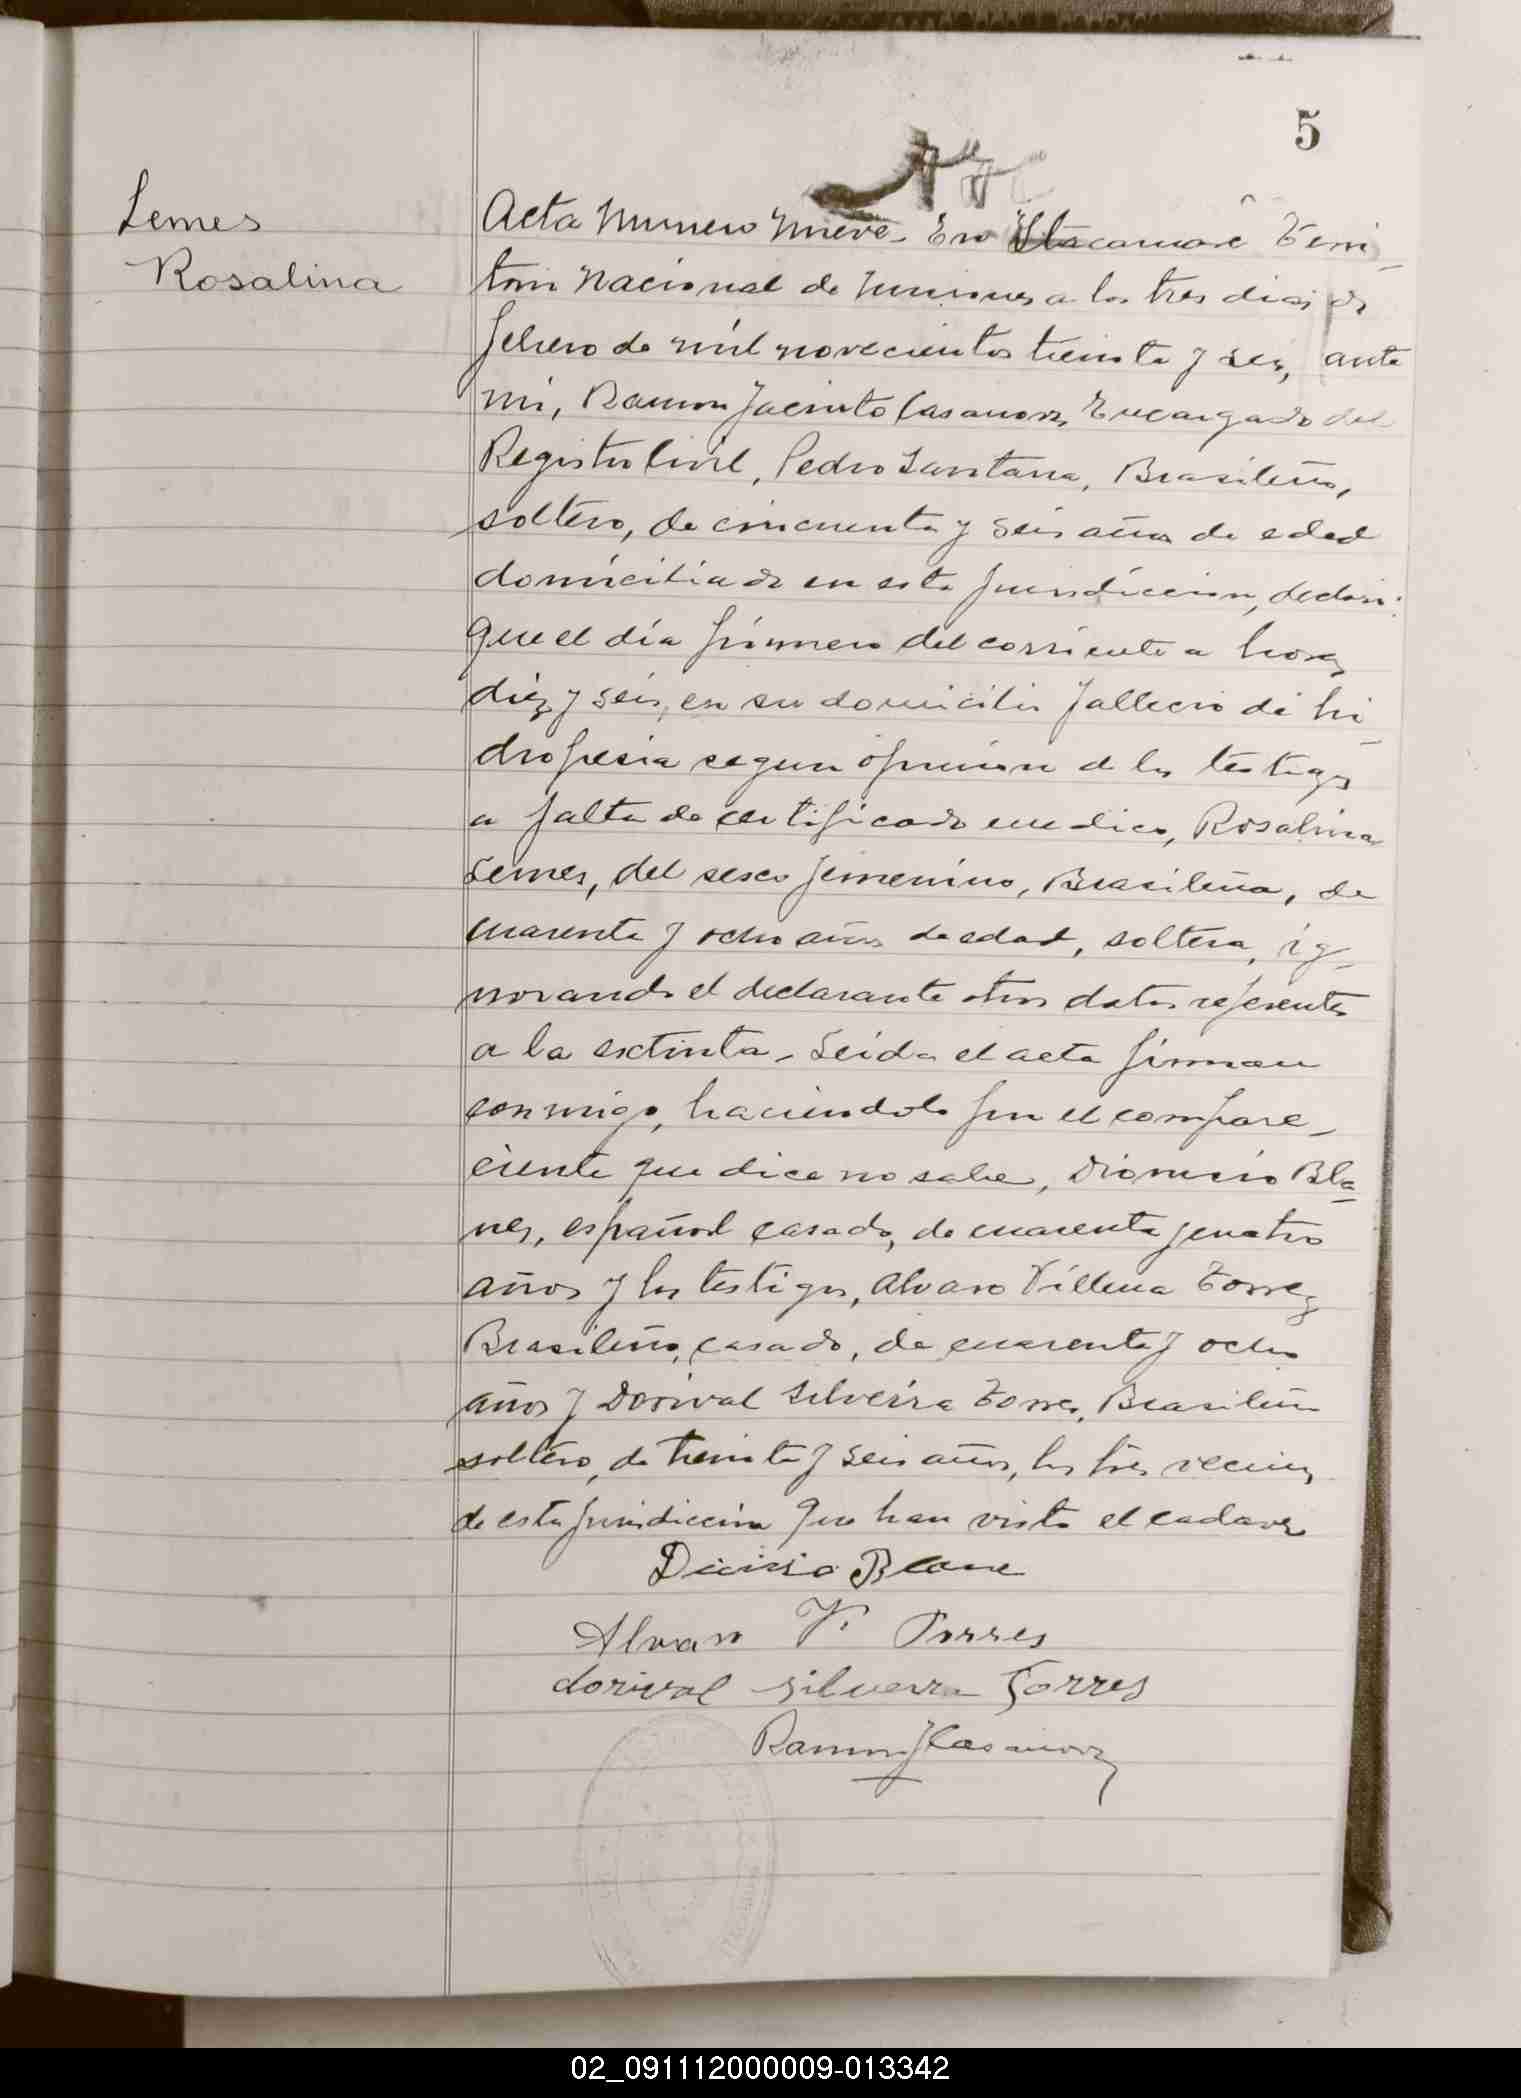 5
Lemes
Rosalina
Acta Numero Nueve. En Itacaruaré Terri-
torio Nacional de Misiones a los tres dias de
febrero de mil novecientos treinta y seis, ante
mi, Ramon Jacinto Casanova, Encargado del
Registro Civil, Pedro Santana, Brasileño,
soltero, de cincuenta y seis años de edad
domiciliado en esta jurisdiccion, declaró:
Que el día primero del corriente a horas
diez y seis, en su domicilio fallecio de hi-
dropesia segun opinion de los testigos
a falta de certificado medico, Rosalina
Lemes, del sexo femenino, Brasileña, de
cuarenta y ocho años de edad, soltera, ig-
norando el declarante otros datos referentes
a la extinta. Leida el acta firman
conmigo, haciendolo por el compare-
ciente que dice no saber, Dionisio Bla-
nes, español casado, de cuarenta y cuatro
años y los testigos, Alvaro Villena Torres
Brasileño, casado, de cuarenta y ocho
años y Dorival Silveira Torres, Brasileño
soltero, de treinta y seis años, los tres vecinos
de esta jurisdiccion que han visto el cadaver
Blane
Alvaro V. Torres
dorival silverra Torres
Ramon J Casanova
02_091112000009-013342